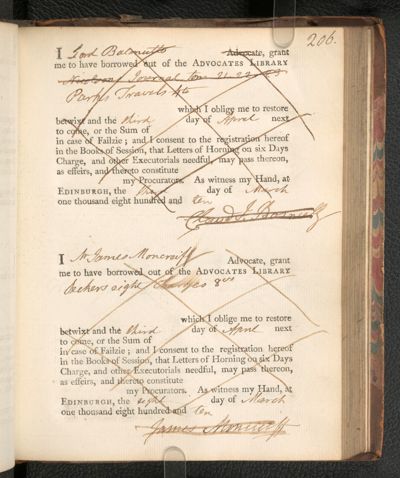 206.
I Lord Balmuto Advocate, grant
me to have borrowed out of the ADVOCATES LIBRARY
Journal tom 21. 22
Parks Travels 4to
which I oblige me to restore
betwixt and the third day of April next
to come, or the Sum of
in case of Failzie; and I consent to the registration hereof
in the Books of Session, that Letters of Horning on six Days
Charge, and other Executorials needful, may pass thereon,
as effeirs, and thereto constitute
my Procurators. As witness my Hand, at
EDINBURGH, the third day of March
one thousand eight hundred and ten
Claud I. Boswell
I Mr James Moncreiff Advocate, grant
me to have borrowed out of the ADVOCATES LIBRARY
eight Charges 8vo
which I oblige me to restore
betwixt and the third day of April next
to come, or the Sum of
in case of Failzie; and I consent to the registration hereof
in the Books of Session, that Letters of Horning on six Days
Charge, and other Executorials needful, may pass thereon,
as effeirs, and thereto constitute
my Procurators. As witness my Hand, at
EDINBURGH, the eight day of March
one thousand eight hundred and ten
James Moncreiff